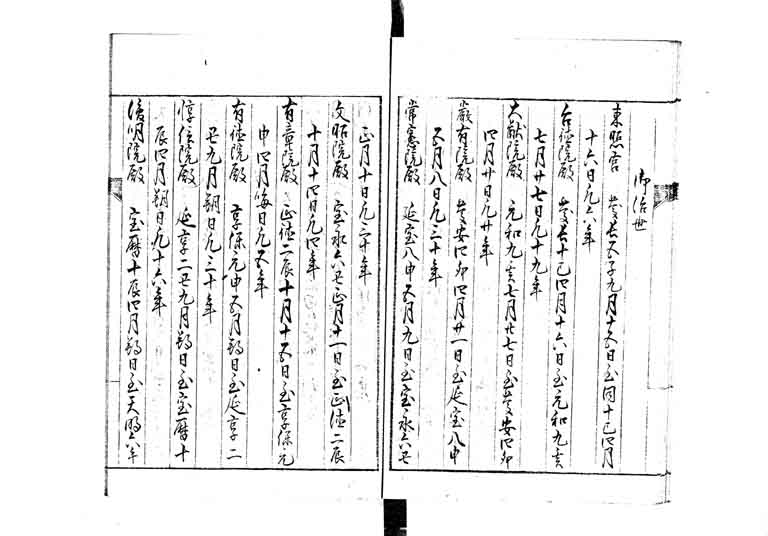 御治世
東照宮 慶長五子九月十五日ゟ同十巳四月
十六日凡六年
台徳院殿 慶長十巳四月十六日ゟ元和九亥
七月廿七日凡十九年
大猷院殿 元和九亥七月廿七日ゟ慶安四卯
四月廿日凡廿年
嚴有院殿 慶安四卯四月廿一日ゟ延宝八申
五月八日凡三十年
常憲院殿 延宝八申五月九日ゟ宝永六丑
正月十日凡三十年
文昭院殿 宝永六丑正月十一日ゟ正徳二辰
十月十四日凡四年
有章院殿 正徳二辰十月十五日ゟ享保元
申四月晦日凡五年
有徳院殿 享保元申五月朔日ゟ延享二
丑九月朔日凡三十年
惇信院殿 延享二丑九月朔日ゟ宝暦十
辰四月朔日凡十六年
浚明院殿 宝暦十辰四月朔日ゟ天明六年